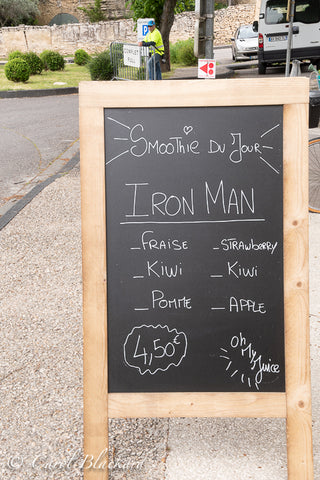 COMPLET
FULL
Smoothie Du Jour
Iron Man
_Fraise _Strawberry
_Kiwi _Kiwi
_Pomme _Apple
4,50€
Oh My Juice
© Carol Blackard